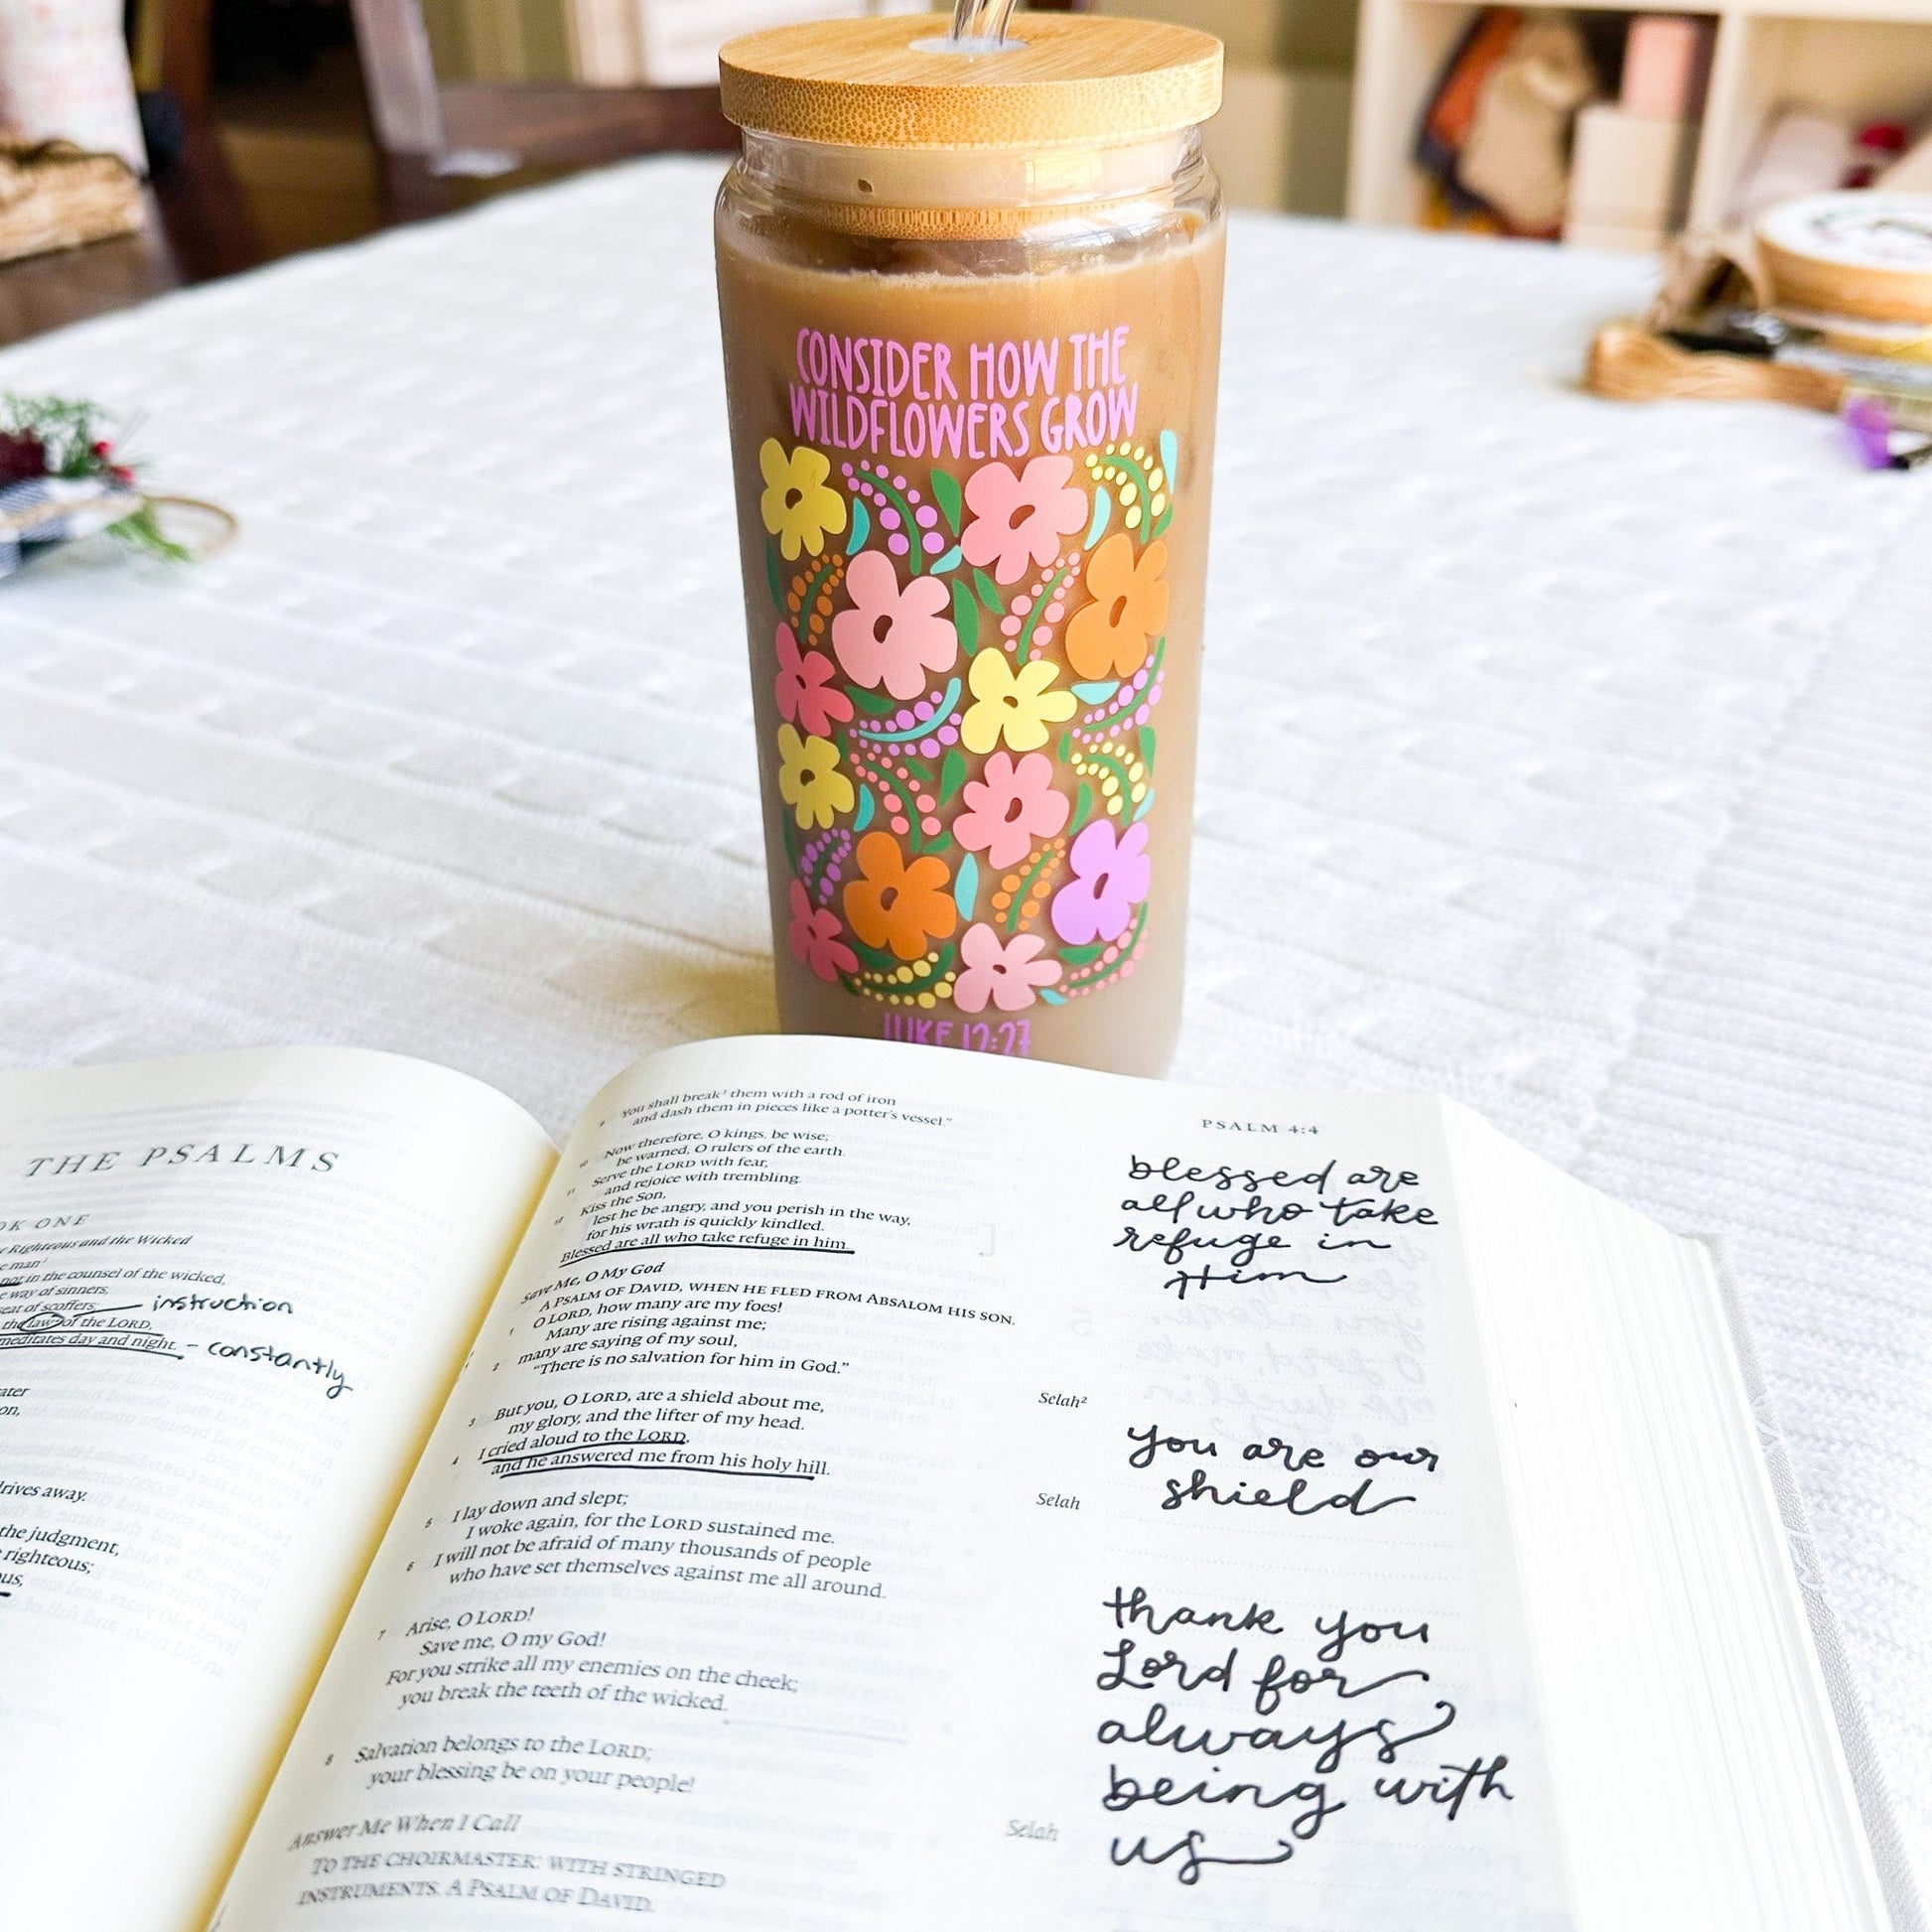 CONSIDER HOW THE
WILDFLOWERS GROW
LUKE 12:27
THE PSALMS
OK ONE
Righteous and the Wicked
e man¹
not in the counsel of the wicked,
e way of sinners,
seat of scoffers;
instruction
the law² of the LORD,
meditates day and night.
- constantly
ater
on,
drives away.
the judgment,
righteous;
ous,
9 You shall break³ them with a rod of iron
and dash them in pieces like a potter's vessel."
10 Now therefore, O kings, be wise;
be warned, O rulers of the earth.
11 Serve the LORD with fear,
and rejoice with trembling.
12 Kiss the Son,
lest he be angry, and you perish in the way,
for his wrath is quickly kindled.
Blessed are all who take refuge in him.
Save Me, O My God
A PSALM OF DAVID, WHEN HE FLED FROM ABSALOM HIS SON.
1 O LORD, how many are my foes!
Many are rising against me;
2 many are saying of my soul,
"There is no salvation for him in God."
Selah²
3 But you, O LORD, are a shield about me,
my glory, and the lifter of my head.
4 I cried aloud to the LORD,
and he answered me from his holy hill.
Selah
5 I lay down and slept;
I woke again, for the LORD sustained me.
6 I will not be afraid of many thousands of people
who have set themselves against me all around.
7 Arise, O LORD!
Save me, O my God!
For you strike all my enemies on the cheek;
you break the teeth of the wicked.
8 Salvation belongs to the LORD;
your blessing be on your people!
Selah
Answer Me When I Call
TO THE CHOIRMASTER: WITH STRINGED
INSTRUMENTS. A PSALM OF DAVID.
PSALM 4:4
blessed are
all who take
refuge in
Him
you are our
shield
thank you
Lord for
always
being with
us